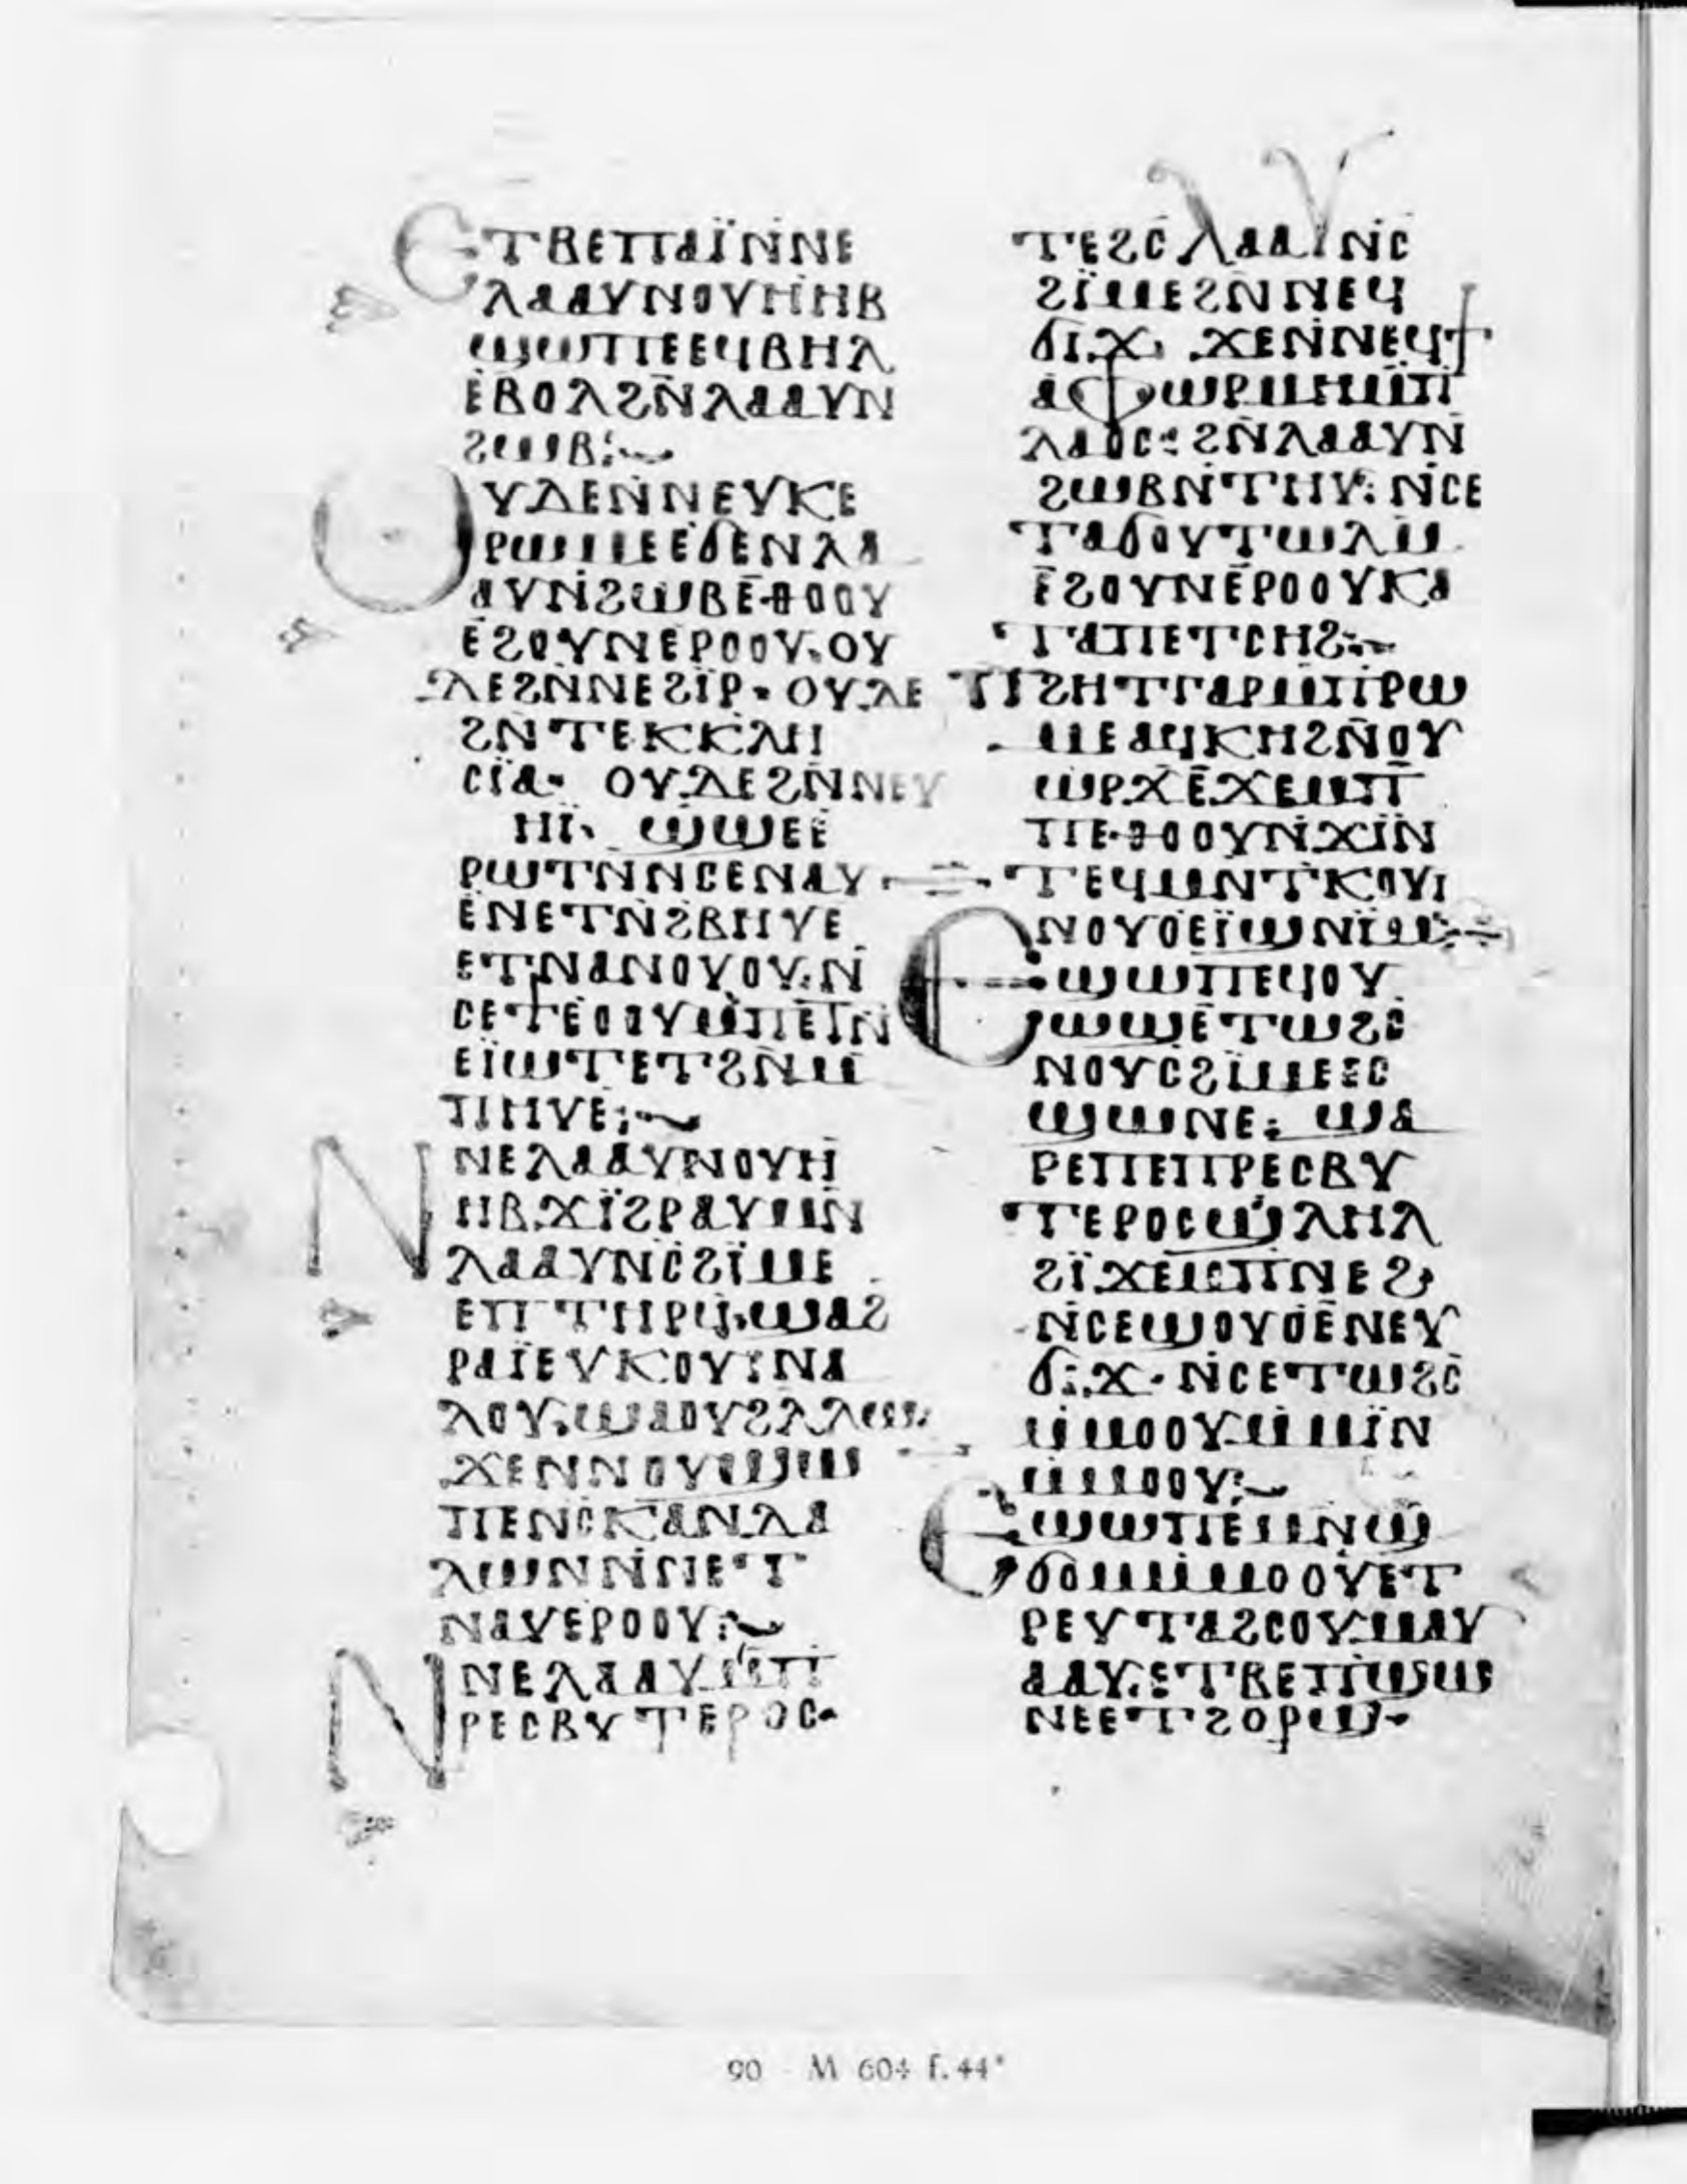 ⲈⲦⲂⲈⲠⲀⲒ̈ⲚⲚⲈ
ⲖⲀⲀⲨⲚⲞⲨⲎⲎⲂ
ϢⲰⲠⲈⲈϤⲂⲎⲖ
ⲈⲂⲞⲖϨⲚ̄ⲖⲀⲀⲨⲚ
ϨⲰⲂ:~
ⲞⲨⲆⲈⲚ̇ⲚⲈⲨⲔⲈ
ⲢⲰⲘⲈⲈϬⲈⲚⲖⲀ
ⲀⲨⲚ̇ϨⲰⲂⲈ̄ⲐⲞⲞⲨ
ⲈϨⲞⲨⲚⲈⲢⲞⲞⲨ·ⲞⲨ
ⲆⲈϨⲚ̇ⲚⲈϨⲒ̈Ⲣ· ⲞⲨⲆⲈ
ϨⲚ̄ⲦⲈⲔⲔⲖⲎ
ⲤⲒ̈Ⲁ· ⲞⲨⲆⲈϨⲚ̄ⲚⲈⲨ
ⲎⲒ̈· ϢϢⲈⲈ̇
ⲢⲰⲦⲚ̇ⲚⲤⲈⲚⲀⲨ
ⲈⲚⲈⲦⲚ̇ϨⲂⲎⲨⲈ
ⲈⲦⲚⲀⲚⲞⲨⲞⲨ·Ⲛ̇
ⲤⲈϮⲈⲞⲞⲨⲘ̇ⲠⲈⲦⲚ̄
ⲈⲒ̈ⲰⲦⲈⲦϨⲚ̄Ⲙ
ⲠⲎⲨⲈ:~
ⲚⲚⲈⲖⲀⲀⲨⲚⲞⲨⲎ
ⲎⲂϪⲒ̈ϨⲢⲀⲨⲘⲚ̄
ⲖⲀⲀⲨⲚ̇ⲤϨⲒ̈ⲘⲈ
ⲈⲠⲦⲎⲢϤ·ϢⲀϨ
ⲢⲀⲒ̈ⲈⲨⲔⲞⲨⲒ̈ⲚⲀ
ⲖⲞⲨ·ϢⲀⲞⲨϨⲖⲖⲰ·
ϪⲈⲚⲚⲞⲨϢⲰ
ⲠⲈⲚⲤⲔⲀⲚⲆⲀ
ⲖⲰⲚⲚ̇ⲚⲈⲦ
ⲚⲀⲨⲈⲢⲞⲞⲨ:~
ⲚⲚⲈⲖⲀⲀⲨⲘ̇Ⲡ
ⲢⲈⲤⲂⲨⲦⲈⲢⲞⲤ·
ⲦⲈϨⲤⲖⲀⲀⲨⲚ̇Ⲥ
ϨⲒ̈ⲘⲈϨⲚ̄ⲚⲈϤ
ϬⲒϪ· ϪⲈⲚ̇ⲚⲈϤϮ
ⲀⲪⲰⲢⲘⲎⲘ̄Ⲡ
ⲖⲀⲞⲤ: ϨⲚ̇ⲖⲀⲀⲨⲚ̇
ϨⲰⲂⲚ̇ⲦⲎⲨ: Ⲛ̇ⲤⲈ
ⲦⲀϬⲞⲨⲦⲰⲖⲘ
ⲈϨⲞⲨⲚⲈⲢⲞⲞⲨⲔⲀ
ⲦⲀⲠⲈⲦⲤⲎϨ:~
ⲠϨⲎⲦⲄⲀⲢⲘ̄ⲠⲢⲰ
ⲘⲈⲀϤⲔⲎϨⲚ̄ⲞⲨ
ⲰⲢϪ̄ⲈϪⲈⲘⲠ̄
ⲠⲈⲐⲞⲞⲨⲚ̇ϪⲒ̈Ⲛ
ⲦⲈϤⲘⲚ̄ⲦⲔⲞⲨⲒ
ⲚⲞⲨⲞⲈⲒ̈ϢⲚⲒ̈Ⲙ:÷
ⲈϢⲰⲠⲈϤⲞⲨ
ⲰϢⲈⲦⲰϨⲤ
ⲚⲞⲨⲤϨⲒ̈ⲘⲈⲈⲤ
ϢⲰⲚⲈ: ϢⲀ
ⲢⲈⲠⲈⲠⲢⲈⲤⲂⲨ
ⲦⲈⲢⲞⲤϢⲖⲎⲖ
ϨⲒ̈ϪⲈⲘⲠⲚⲈϨ
Ⲛ̇ⲤⲈϢⲞⲨⲞⲈ̄ⲚⲈⲨ
ϬⲒϪ·Ⲛ̇ⲤⲈⲦⲰϨⲤ̄
Ⲙ̇ⲘⲞⲞⲨⲘ̇ⲘⲒ̈Ⲛ
ⲘⲘⲞⲞⲨ:~
ⲈϢⲰⲠⲈⲘⲚϢ
ϬⲞⲘⲘ̇ⲘⲞⲞⲨⲈⲦ
ⲢⲈⲨⲦⲀϨⲤⲞⲨⲘⲀⲨ
ⲀⲀⲨ·ⲈⲦⲂⲈⲠϢⲰ
ⲚⲈⲈⲦϨⲞⲢϢ·
90 - M 604 f.44ᵛ